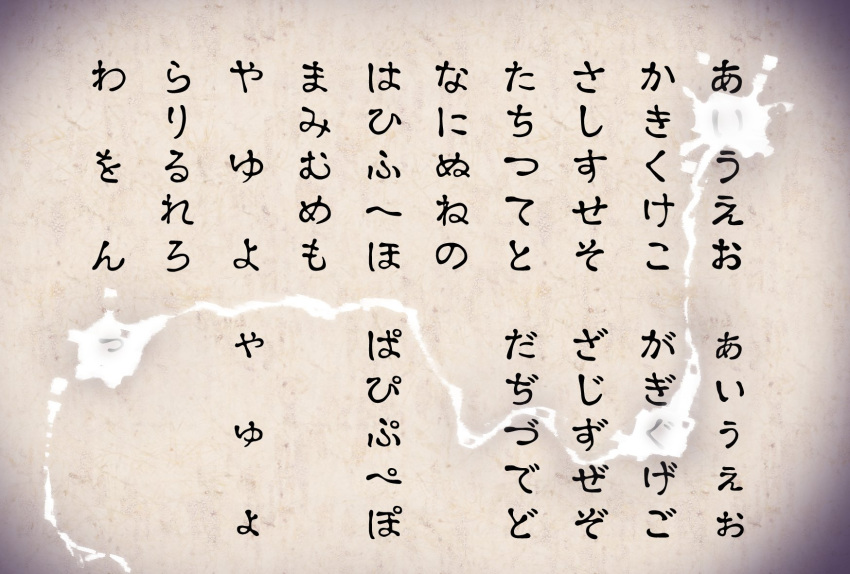 あいうえお
かきくけこ
さしすせそ
たちつてと
なにぬねの
はひふへほ
まみむめも
や ゆ よ
らりるれろ
わ を ん
ぁぃぅぇぉ
がぎぐげご
ざじずぜぞ
だぢづでど
ぱぴぷぺぽ
ゃ ゅ ょ
っ